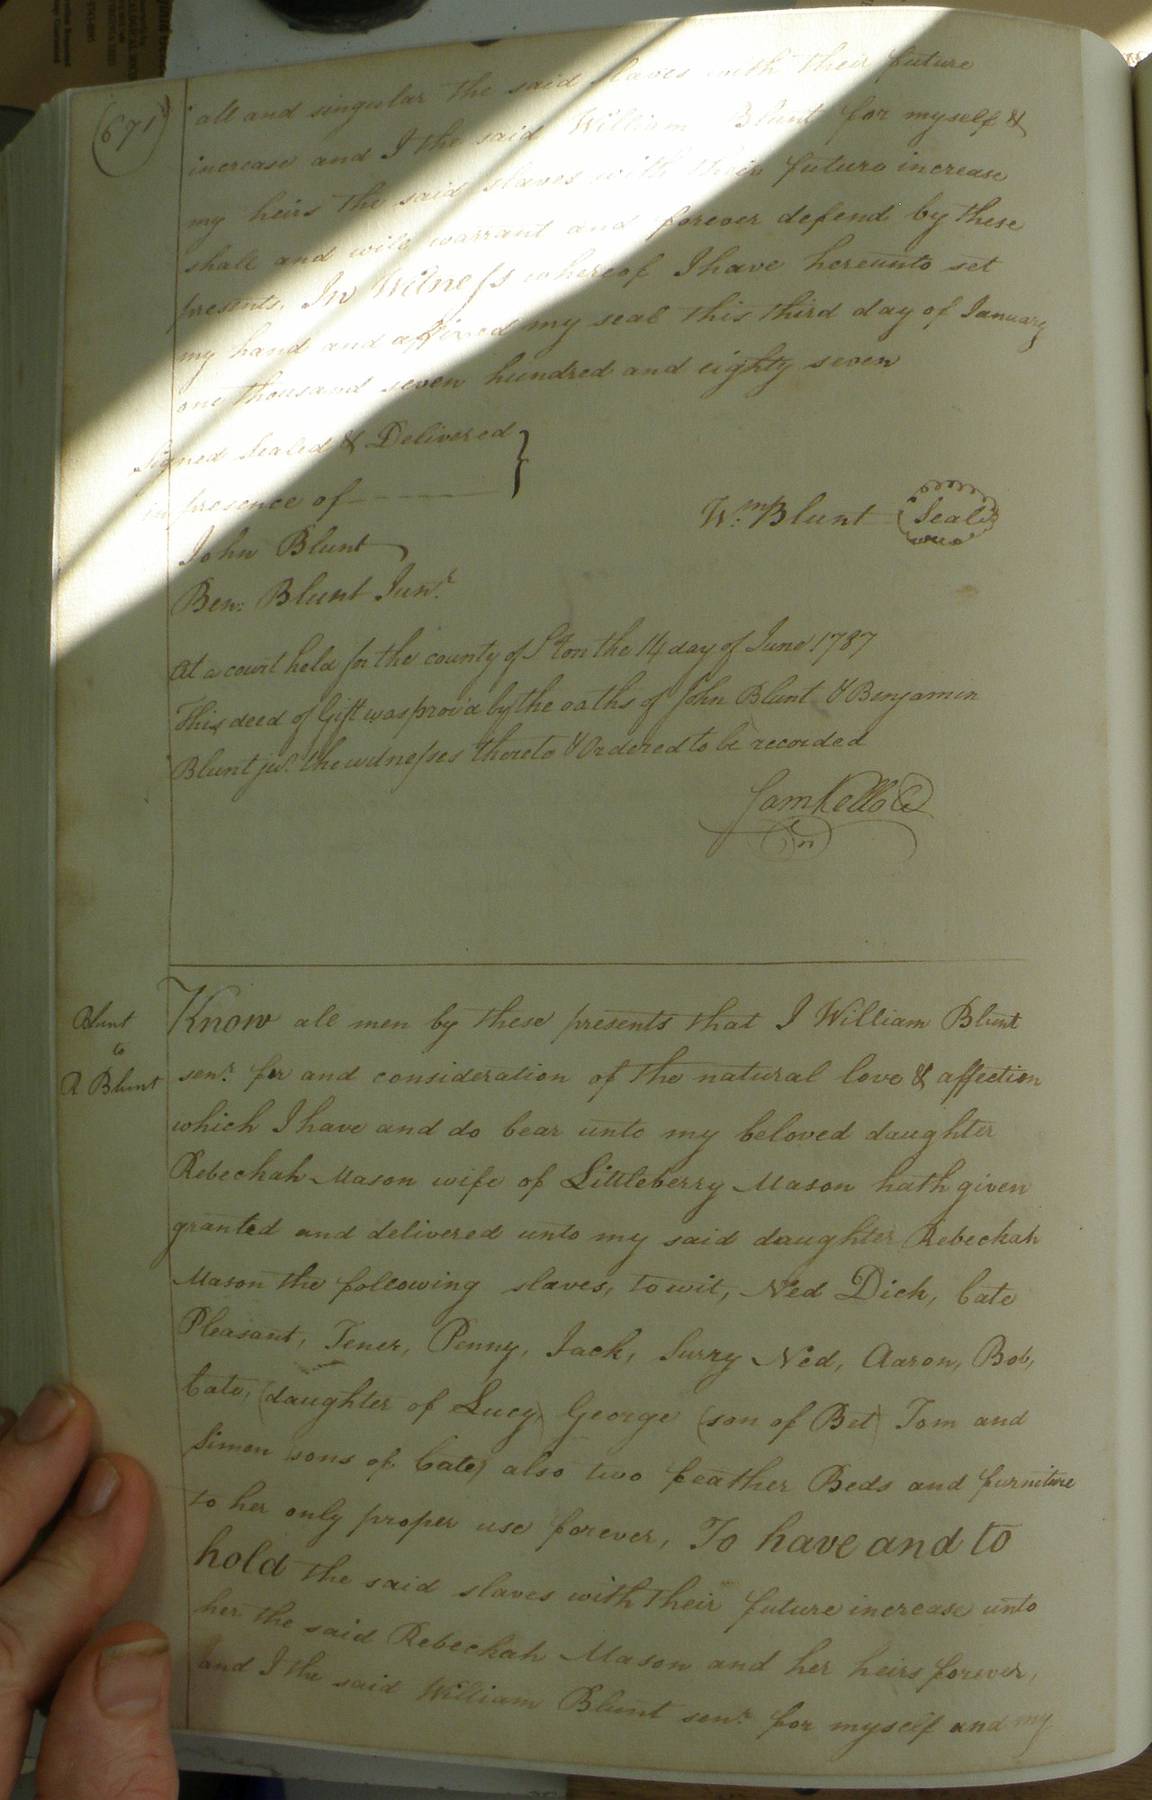 (671)
all and singular the said slaves with their future
increase and I the said William Blunt for myself &
my heirs the said slaves with their future increase
shall and will warrant and forever defend by these
presents. In Witness whereof I have hereunto set
my hand and affixed my seal this third day of January
one thousand seven hundred and eighty seven
Signed Sealed & Delivered
in presence of
Wm. Blunt Seal
John Blunt
Ben: Blunt Junr.
At a court held for the county of Sºton the 14 day of June 1787
This deed of Gift was prov'd by the oaths of John Blunt & Benjamin
Blunt jur. the witnesses thereto & Ordered to be recorded
Sam Kello C
Blunt
to
R Blunt
Know all men by these presents that I William Blunt
senr. for and consideration of the natural love & affection
which I have and do bear unto my beloved daughter
Rebeckah Mason wife of Littleberry Mason hath given
granted and delivered unto my said daughter Rebeckah
Mason the following slaves, to wit, Ned Dick, Cate
Pleasant, Tener, Penny, Jack, Surry Ned, Aaron, Bob,
Cate, (daughter of Lucy) George (son of Bet) Tom and
Simon (sons of Cate) also two feather Beds and furniture
to her only proper use forever, To have and to
hold the said slaves with their future increase unto
her the said Rebeckah Mason and her heirs forever,
and I the said William Blunt senr. for myself and my